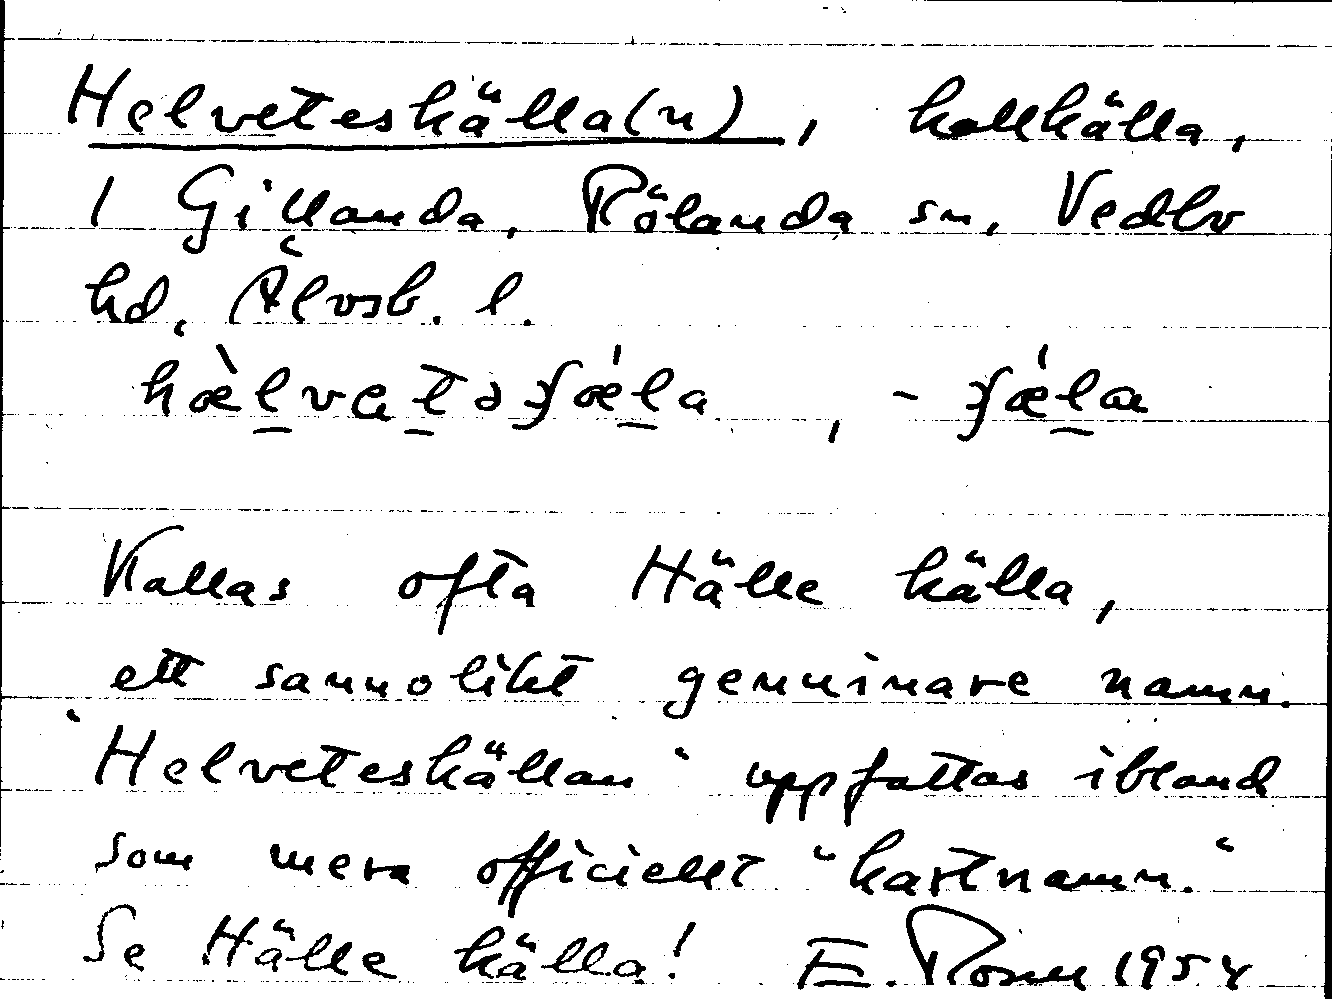 Helveteskälla(n), kallkälla,
1 Gillanda, Rölanda sn, Vedbo
hd, Älvsb. l.
Kallas ofta Hälle källa,
ett sannolikt genuinare namn.
"Helveteskällan" uppfattas ibland
som mera officiellt "kartnamn."
Se Hälle källa! E. 1954